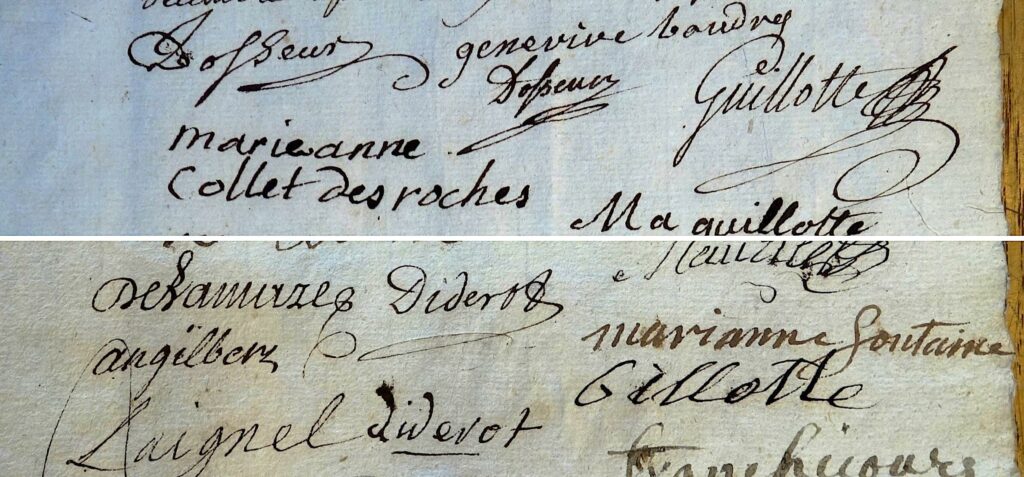 Dosseur genevive baudry
Dosseur Guillotte
marie anne
Collet des roches
Ma guillotte
Delamaze Diderot
angilbert marianne fontaine
Gillotte
Laignel diderot